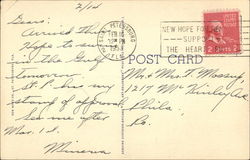 2/14
Dears:
Arrived Thurs
Hope to swim
in the Gulf
tomorrow
St. P. has my
stamp of approval
See me after
Mar. 1st.
Minerva
ST. PETERSBURG
FEB 15
PM
1953
FLA.
NEW HOPE FOR
SUPPO
THE HEART
2¢ 2¢
POST CARD
Mr. & Mrs. F. Massey
1217 McKinley Ave
Phila
Pa.